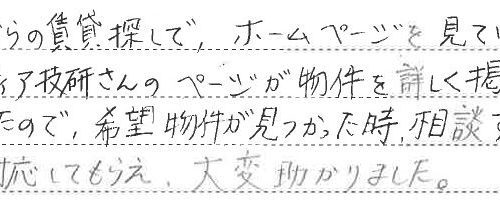 らの賃貸探しで，ホームページを見てい
ィア技研さんの ページが物件を詳しく掲
たので，希望物件が見つかった時，相談す
対応してもらえ、大変助かりました。